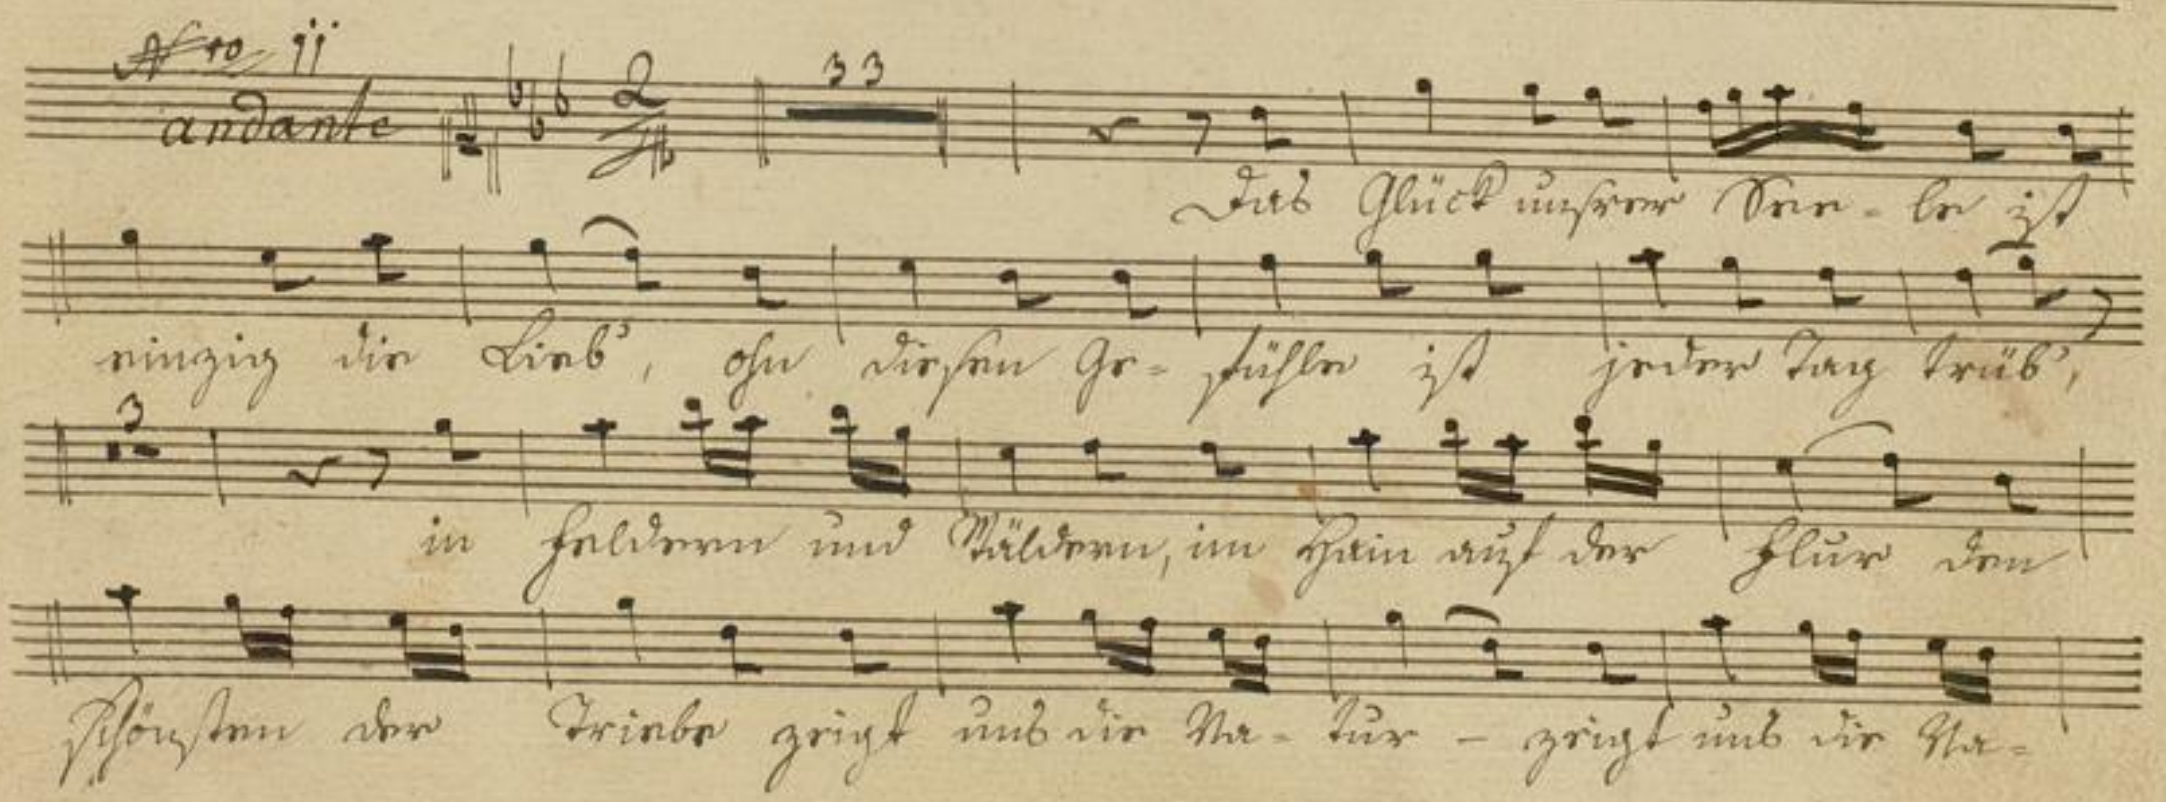 Nro 11
andante 2/4 33
Das Glück unsrer See- le ist
einzig die Lieb', ohn diesen Ge- fühle ist jeder Tag trüb',
3
in Feldern und Wäldern, im Hain auf der Flur den
schönsten der Triebe zeigt uns die Na- tur - zeigt uns die Na-